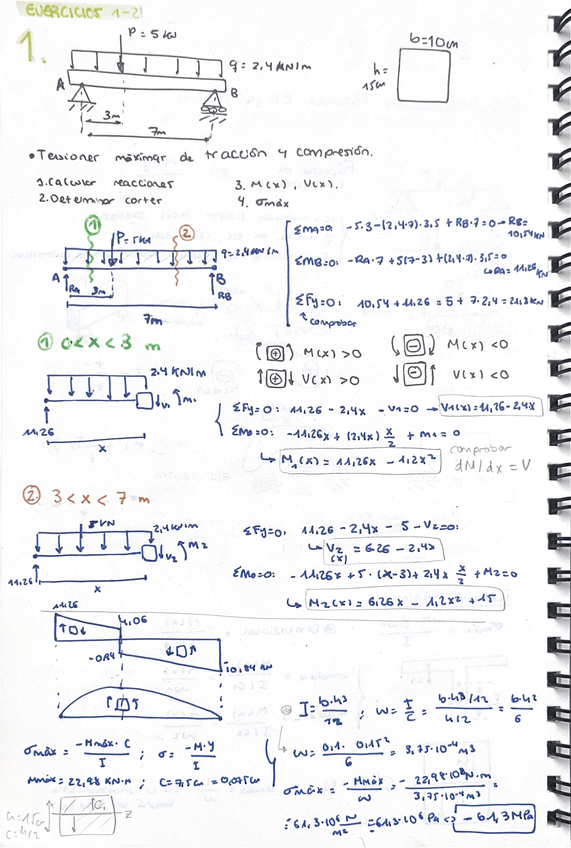 EJERCICIOS 1-2
1.
P = 5 kN
q = 2,4 kN/m
A
B
3m
7m
b=10cm
h=
15cm
• Tensiones máximas de tracción y compresión.
1. Calcular reacciones
2. Determinar cortes
3. M(x), V(x).
4. σmáx
①
②
P=5kN
q=2,4kN/m
A
B
RA
3m
RB
7m
ΣMA=0: -5·3-(2,4·7)·3,5 + RB·7=0 → RB=
10,54 kN
ΣMB=0: -RA·7 + 5(7-3) + (2,4·7)·3,5=0
↳ RA= 11,26 kN
ΣFy=0: 10,54 + 11,26 = 5 + 7·2,4 = 21,8 kN
↑ comprobar
① 0 < x < 3 m
(⊕) M(x) > 0
(⊖) M(x) < 0
↑⊕↓ V(x) > 0
↓⊖↑ V(x) < 0
2,4 kN/m
V1
M1
11,26
x
ΣFy=0: 11,26 - 2,4x - V1=0 → V1(x)=11,26-2,4x
ΣM0=0: -11,26x + (2,4x) x/2 + M1 = 0
↳ M1(x) = 11,26x - 1,2x²
comprobar
dM/dx = V
② 3 < x < 7 m
5 kN
2,4 kN/m
V2
M2
11,26
x
ΣFy=0: 11,26 - 2,4x - 5 - V2=0:
↳ V2(x) = 6,26 - 2,4x
ΣM0=0: -11,26x + 5·(x-3) + 2,4x x/2 + M2=0
↳ M2(x) = 6,26x - 1,2x² + 15
11,26
4,06
-0,94
10,84 kN
I = b·h³/12 ; W = I/C = b·h³/12 / h/2 = b·h²/6
W = 0,1·0,15²/6 = 3,75·10⁻⁴ m³
σmáx = -Mmáx·C/I ; σ = -M·y/I
Mmáx = 22,98 kN·m ; C = 7,5cm = 0,075cm
σmáx = -Mmáx/W = -22,98·10³ N·m / 3,75·10⁻⁴ m³ =
= 61,3·10⁶ N/m² = 61,3·10⁶ Pa <> -61,3 MPa
h=15cm
C=h/2
z